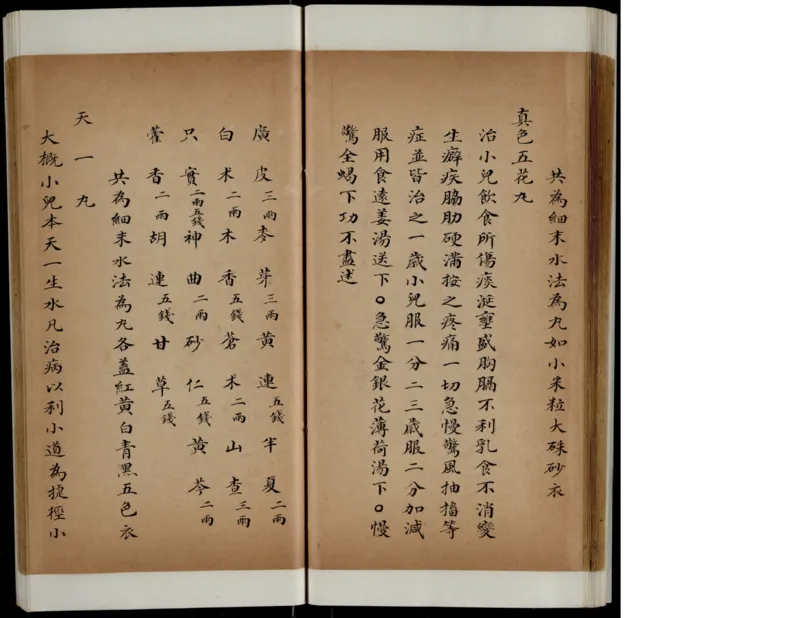 共為細末水法為丸如小米粒大硃砂衣
真色五花丸
治小兒飲食所傷痰涎壅盛胸膈不利乳食不消變
生癖疾脇肋硬滿按之疼痛一切急慢驚風抽搐等
症並皆治之一歲小兒服一分二三歲服二分加減
服用食遠姜湯送下○急驚金銀花薄荷湯下○慢
驚全蝎下功不盡述
廣皮三兩麥芽三兩黃連五錢半夏二兩
白术二兩木香五錢蒼术二兩山查三兩
只實二兩五錢神曲二兩砂仁五錢黃芩二兩
藿香二兩胡連五錢甘草五錢
共為細末水法為丸各蓋紅黃白青黑五色衣
天一丸
大概小兒本天一生水凡治病以利小道為捷徑小